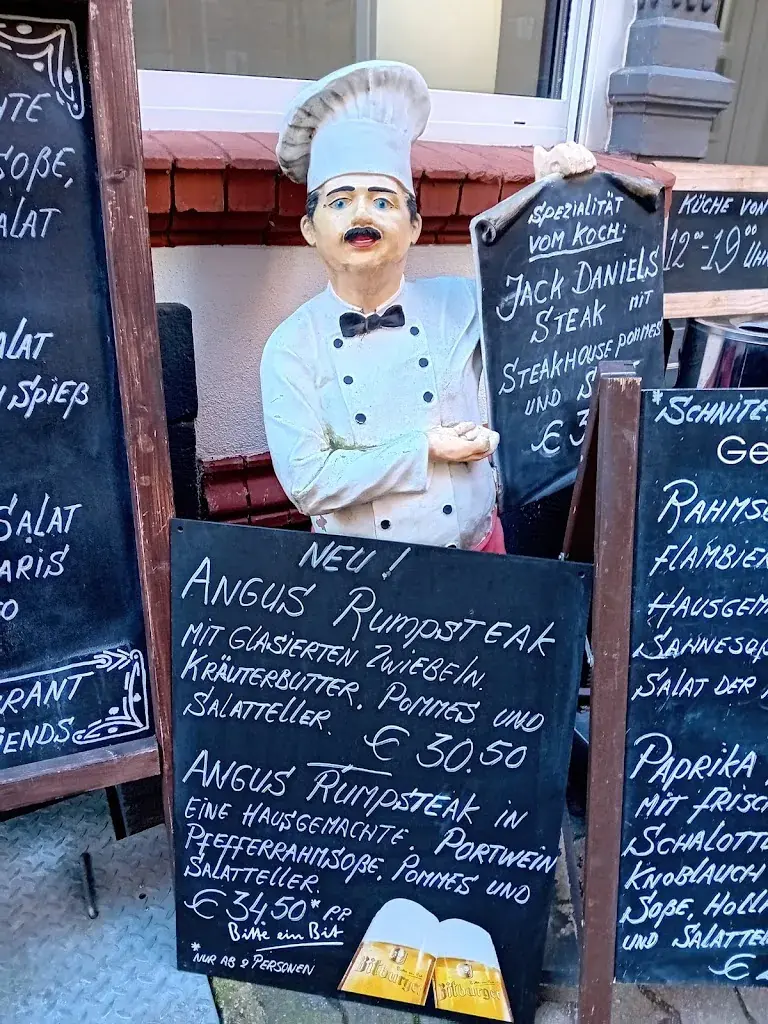 SOßE,
SALAT
SPIEß
SALAT
SPEZIALITÄT
VOM KOCH:
JACK DANIELS
STEAK MIT
STEAKHOUSE POMMES
UND
€ 3
KÜCHE VON
12⁰⁰-19⁰⁰ UHR
NEU!
ANGUS RUMPSTEAK
MIT GLASIERTEN ZWIEBELN.
KRÄUTERBUTTER, POMMES UND
SALATTELLER.
€ 30.50
ANGUS RUMPSTEAK IN
EINE HAUSGEMACHTE, PORTWEIN
PFEFFERRAHMSOßE, POMMES UND
SALATTELLER.
€ 34,50* P.P.
Bitte ein Bit
*NUR AB 2 PERSONEN
Bitburger
Bitburger
*SCHNITZE
Ge
RAHMS
FLAMBIER
HAUSGEM
SAHNESOß
SALAT DER
PAPRIKA
MIT FRISC
SCHALOTT
KNOBLAUCH
SOßE, HOLL
UND SALATTE
€